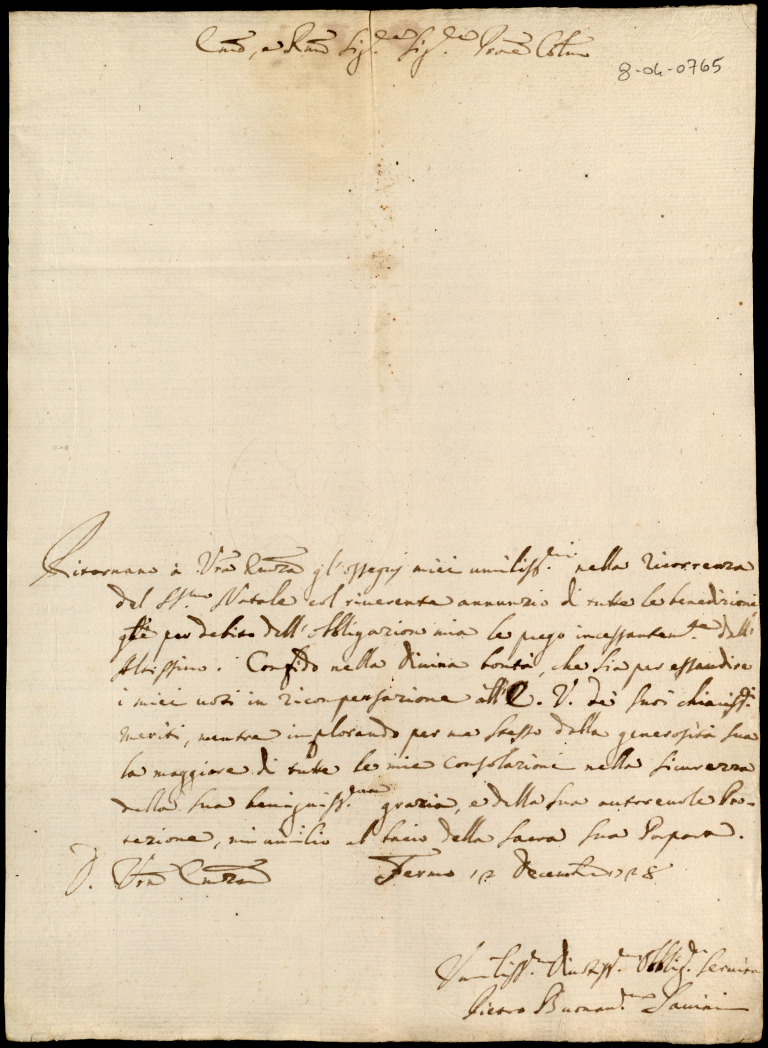 Emo, e Rmo Sig.re Sig.re Prone Colmo
8-04-0765
Ritornano à Vra Emza gl'ossequj miei umiliss.mi nella ricorrenza
del SS.mo Natale col riverente annunzio di tutte le benedizioni,
che per debito dell'obbligazion mia le prego incessantem.te dall'
Altissimo. Confido nella Divina bontà, che sia per essaudire
i miei voti in ricompensazione all'E. V. de' suoi chiariss.mi
meriti, mentre implorando per me stesso dalla generosità sua
la maggiore di tutte le mie consolazioni nella sicurezza
della sua beniguiss.ma grazia, e della sua autorevole Pro-
tezione, mi umilio al bacio della Sacra sua Porpora.
D. Vra Emza Fermo 12 Decembre 1728
Umiliss.mo Divotiss.mo Obblig.mo Servitore
Pietro